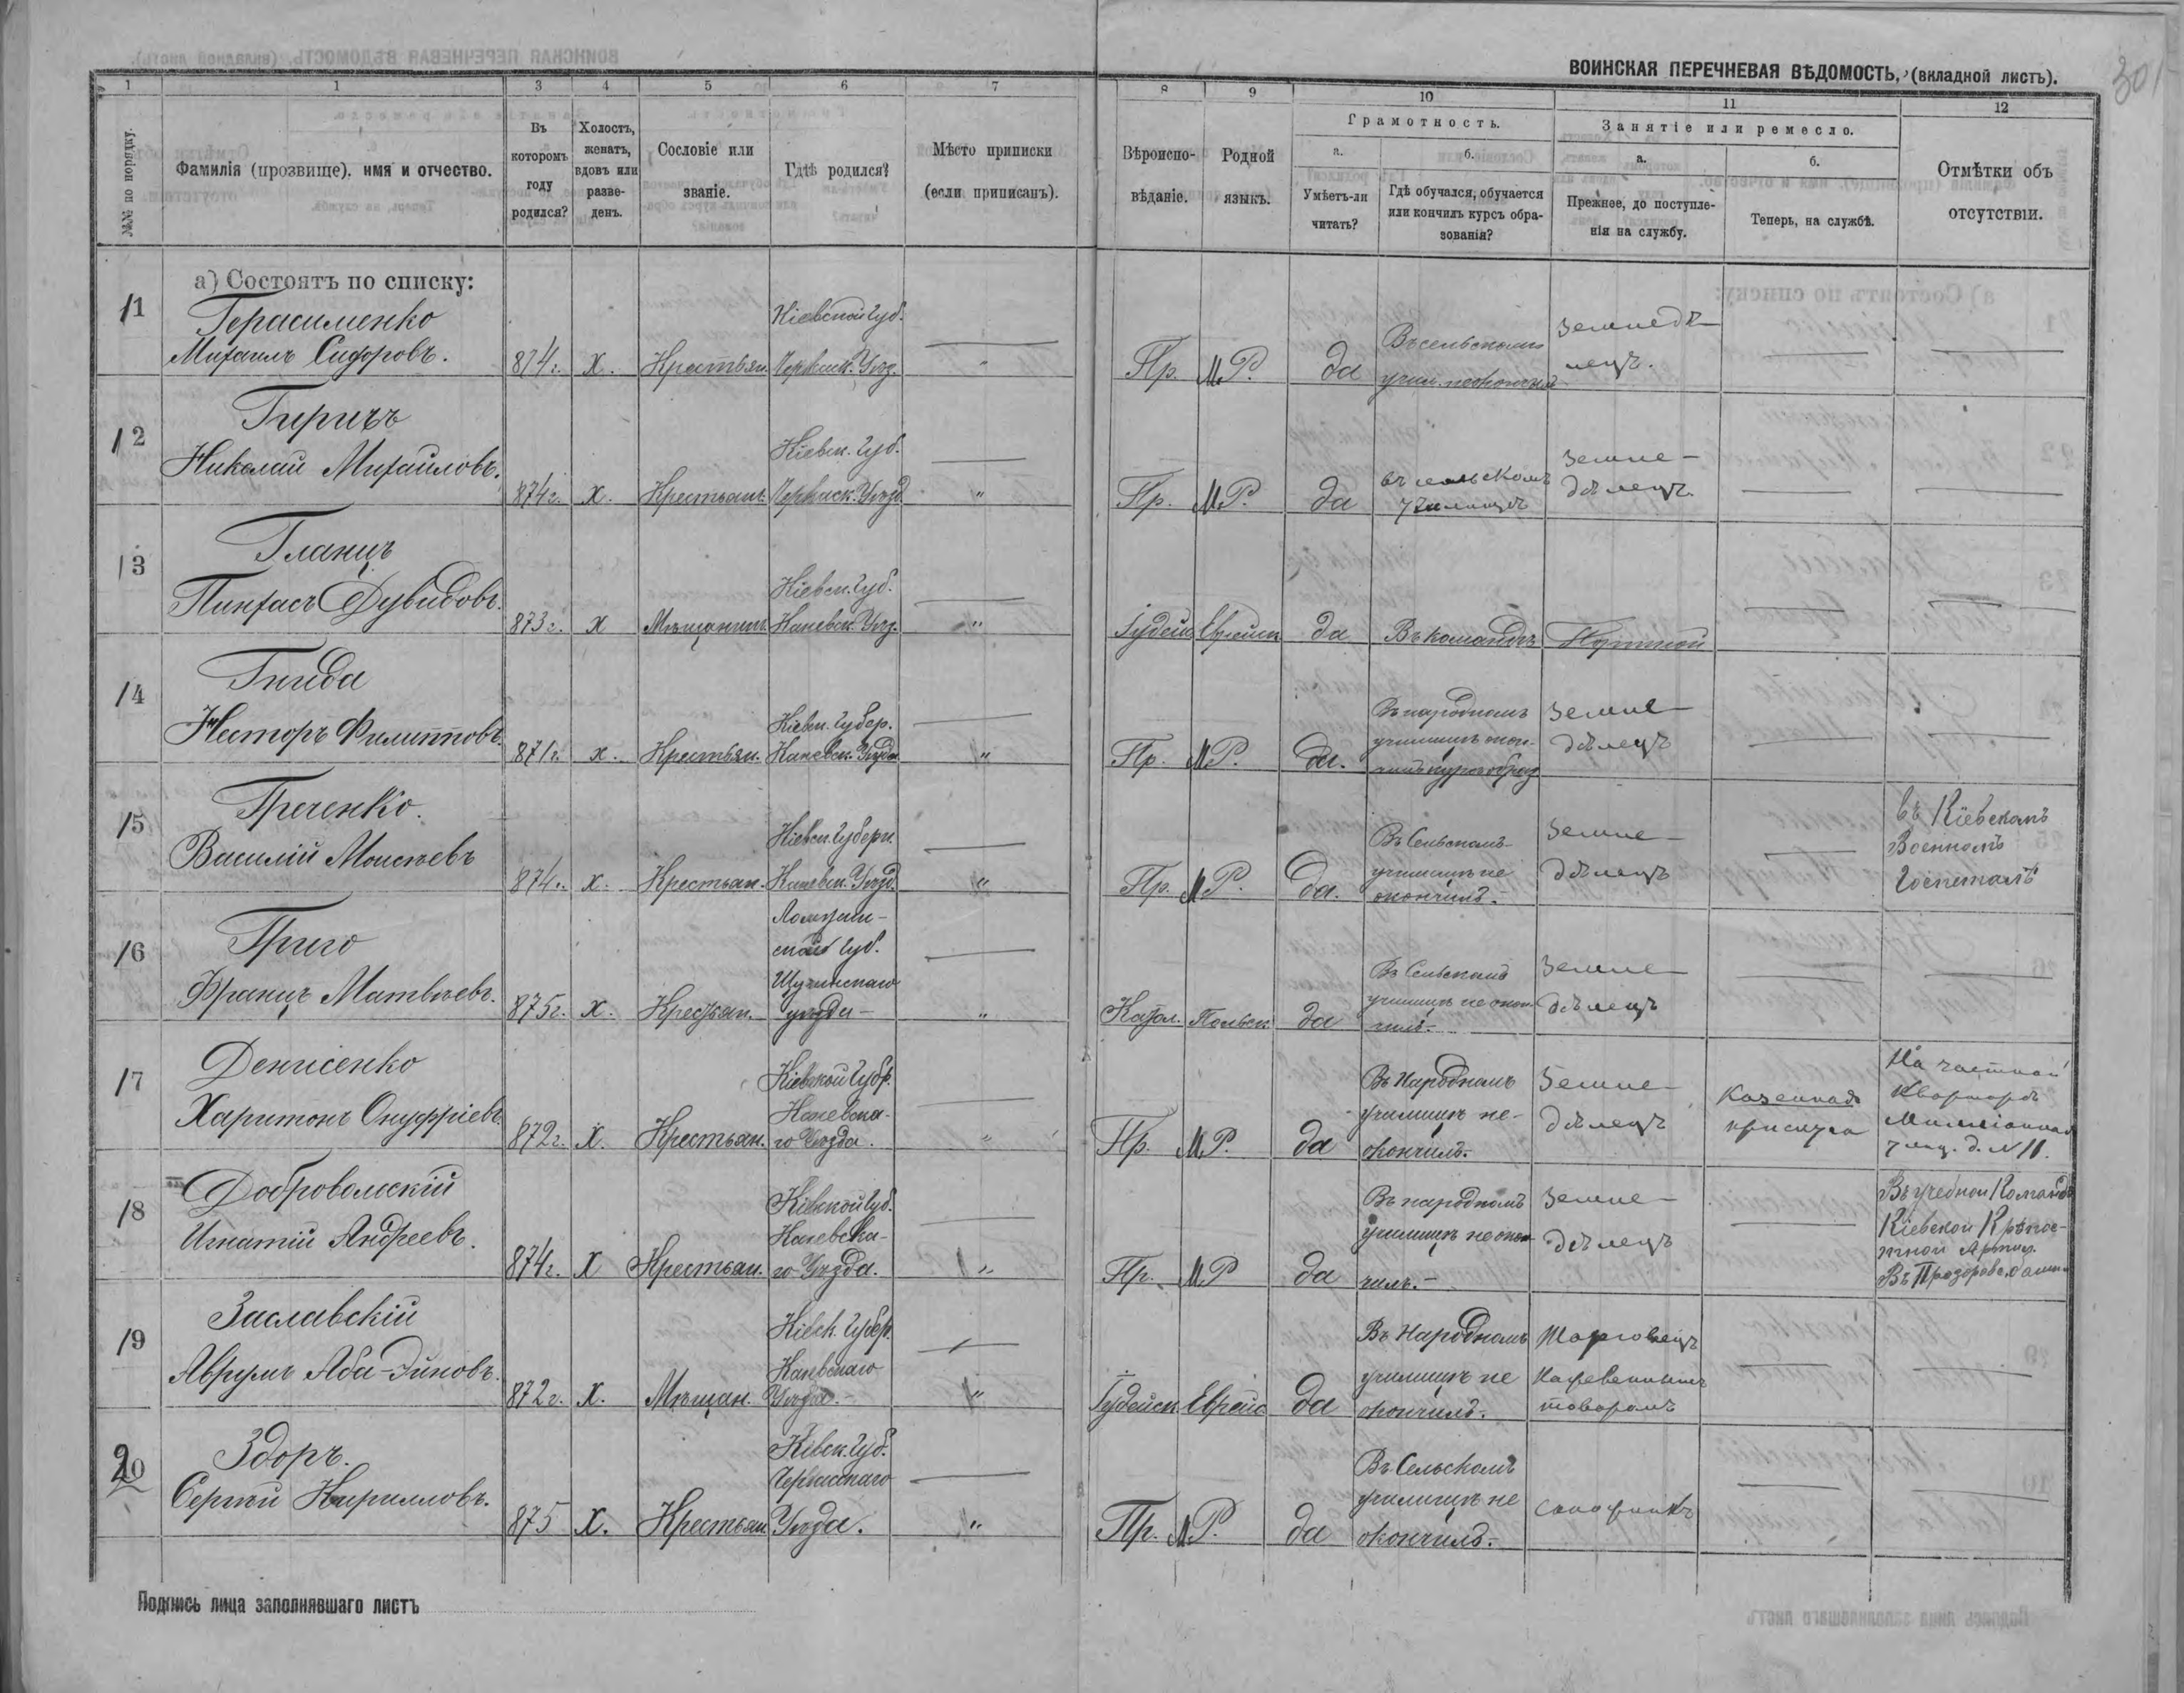 ВОИНСКАЯ ПЕРЕЧНЕВАЯ ВѢДОМОСТЬ, (вкладной листъ).
301
1 1 3 4 5 6 7 8 9 10 11 12
№№ по порядку.
Фамилія (прозвище), имя и отчество.
Въ которомъ году родился?
Холостъ, женатъ, вдовъ или разве-денъ.
Сословіе или званіе.
Гдѣ родился?
Мѣсто приписки (если приписанъ).
Вѣроиспо-вѣданіе.
Родной языкъ.
Грамотность.
а. Умѣетъ-ли читать?
б. Гдѣ обучался, обучается или кончилъ курсъ обра-зованія?
Занятіе или ремесло.
а. Прежнее, до поступле-нія на службу.
б. Теперь, на службѣ.
Отмѣтки объ отсутствіи.
а) Состоятъ по списку:
11 Герасименко
Михаилъ Сидоровъ. 874г. Х. Крестьян. Кіевской Губ. Черкаск. Уѣзд. "
Пр. М.Р. да Въ сельскомъ учил. не окончил Землед��-лецъ.
12 Гиричъ
Николай Михайловъ. 874г. Х. Крестьян. Кіевск. Губ. Черкаск. Уѣзд. "
Пр. М.Р. да въ сельскомъ училищѣ Земле-дѣлецъ.
13 Гланцъ
Пинхасъ Дувидовъ. 873г. Х Мѣщанин. Кіевск. Губ. Каневск. Уѣзд. "
Іудейск Еврейск да Въ командѣ Портной
14 Гнида
Несторъ Филипповъ. 871г. х. Крестьян. Кіевск. Губер. Каневск. Уѣзда "
Пр. М.Р. Да. Въ народномъ училищѣ окон-чилъ курсъ образ Земле-дѣлецъ
15 Греченко.
Василій Моисѣевъ 874г. х. Крестьян. Кіевск. Губерн. Каневск. Уѣзд. "
Пр. М.Р. Да. Въ Сельскомъ училищѣ не окончилъ.- Земле-дѣлецъ
въ Кіевскомъ Военномъ Госпиталѣ
16 Григо
Францъ Матвѣевъ. 875г. х. Крестьян. Ломжин-ской Губ. Щучинскаго уѣзда- "
Катол. Польск. да Въ Сельскомъ училищѣ не окон-чилъ.- Земле-дѣлецъ
17 Денисенко
Харитонъ Онуфріевъ. 872г. Х. Крестьян. Кіевской Губр. Каневска-го Уѣзда. "
Пр. М.Р. да Въ Народномъ училищѣ не-окончилъ. Земле-дѣлецъ Казенная прислуга
На частной квартирѣ Милліонная улиц. д. № 11.
18 Добровольскій
Игнатій Андреевъ. 874г. Х Крестьян. Кіевской Губ. Каневска-го Уѣзда. "
Пр. М.Р да Въ народномъ училищѣ не окон-чилъ.- Земле-дѣлецъ
Въ учебной Командѣ Кіевской Крѣпос-тной Артил. Въ Прозоров. башн.
19 Заславскій
Аврумъ Аба-Эйновъ. 872г. Х. Мѣщан. Кіевск. Губер. Каневскаго Уѣзда.- "
Іудейск. Еврейс. да Въ Народномъ училищѣ не окончилъ. торговецъ кожевеннымъ товаромъ
20 Здоръ.
Сергѣй Кирилловъ. 875 Х. Крестьян. Кіевск. Губ. Черкасскаго Уѣзда. "
Пр. М.Р. да Въ Сельскомъ училищѣ не окончилъ.- сапожникъ
Подпись лица заполнявшаго листъ